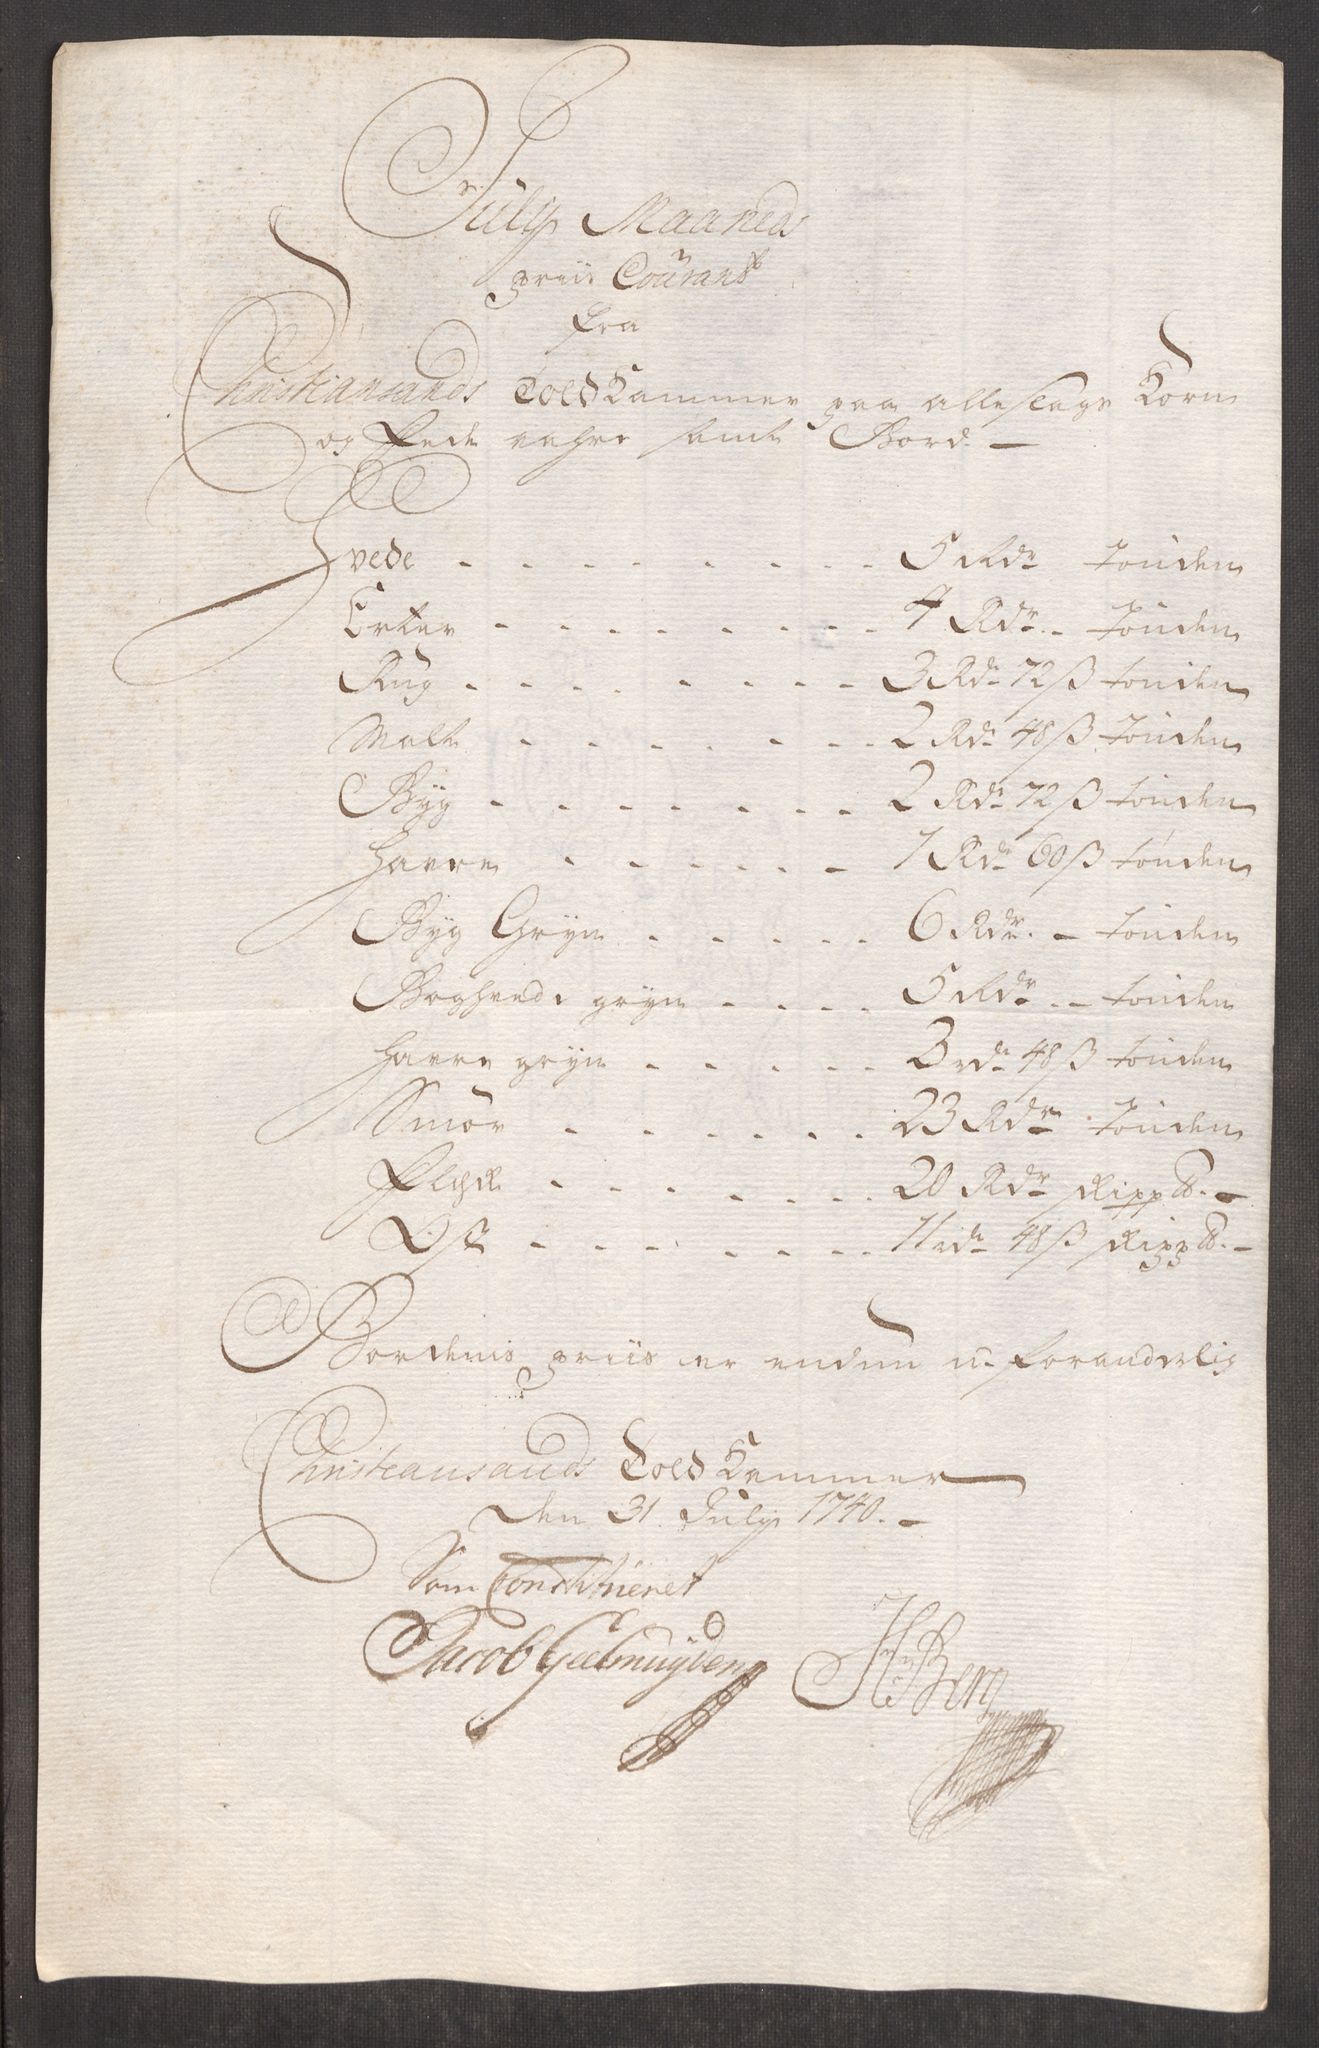 July Maaneds
priis Courant
fra
Christiansands Told Kammer paa alle slags Korn
og Fede vahre samt Bord. –
Hvede - - - - - - - - 5 Rdr tønden
Erter - - - - - - - - 4 Rdr. - tønden
Rug - - - - - - - - 3 Rdr 72 ß tønden
Malt - - - - - - - 2 Rdr 48 ß tønden
Byg - - - - - - - 2 Rdr 72 ß tønden
Havre - - - - - - 1 Rdr 60 ß tønden
Byg Gryn - - - - - 6 Rdr. - tønden
Boghvede gryn - - - - 5 Rdr - - tønden
Havre gryn - - - - - 3 rdr 48 ß tønden
Smør - - - - - - 23 Rdr tønden
Flesk - - - - - - - 20 Rdr skipp℔. -
Ost - - - - - - - 11 rdr 48 ß skipp℔. -
Bordenis priis er enden u-foranderlig
Christiansands Told Kammer
den 31. July 1740. -
Som Constitueret
Jacob Geelmuyden HBerg